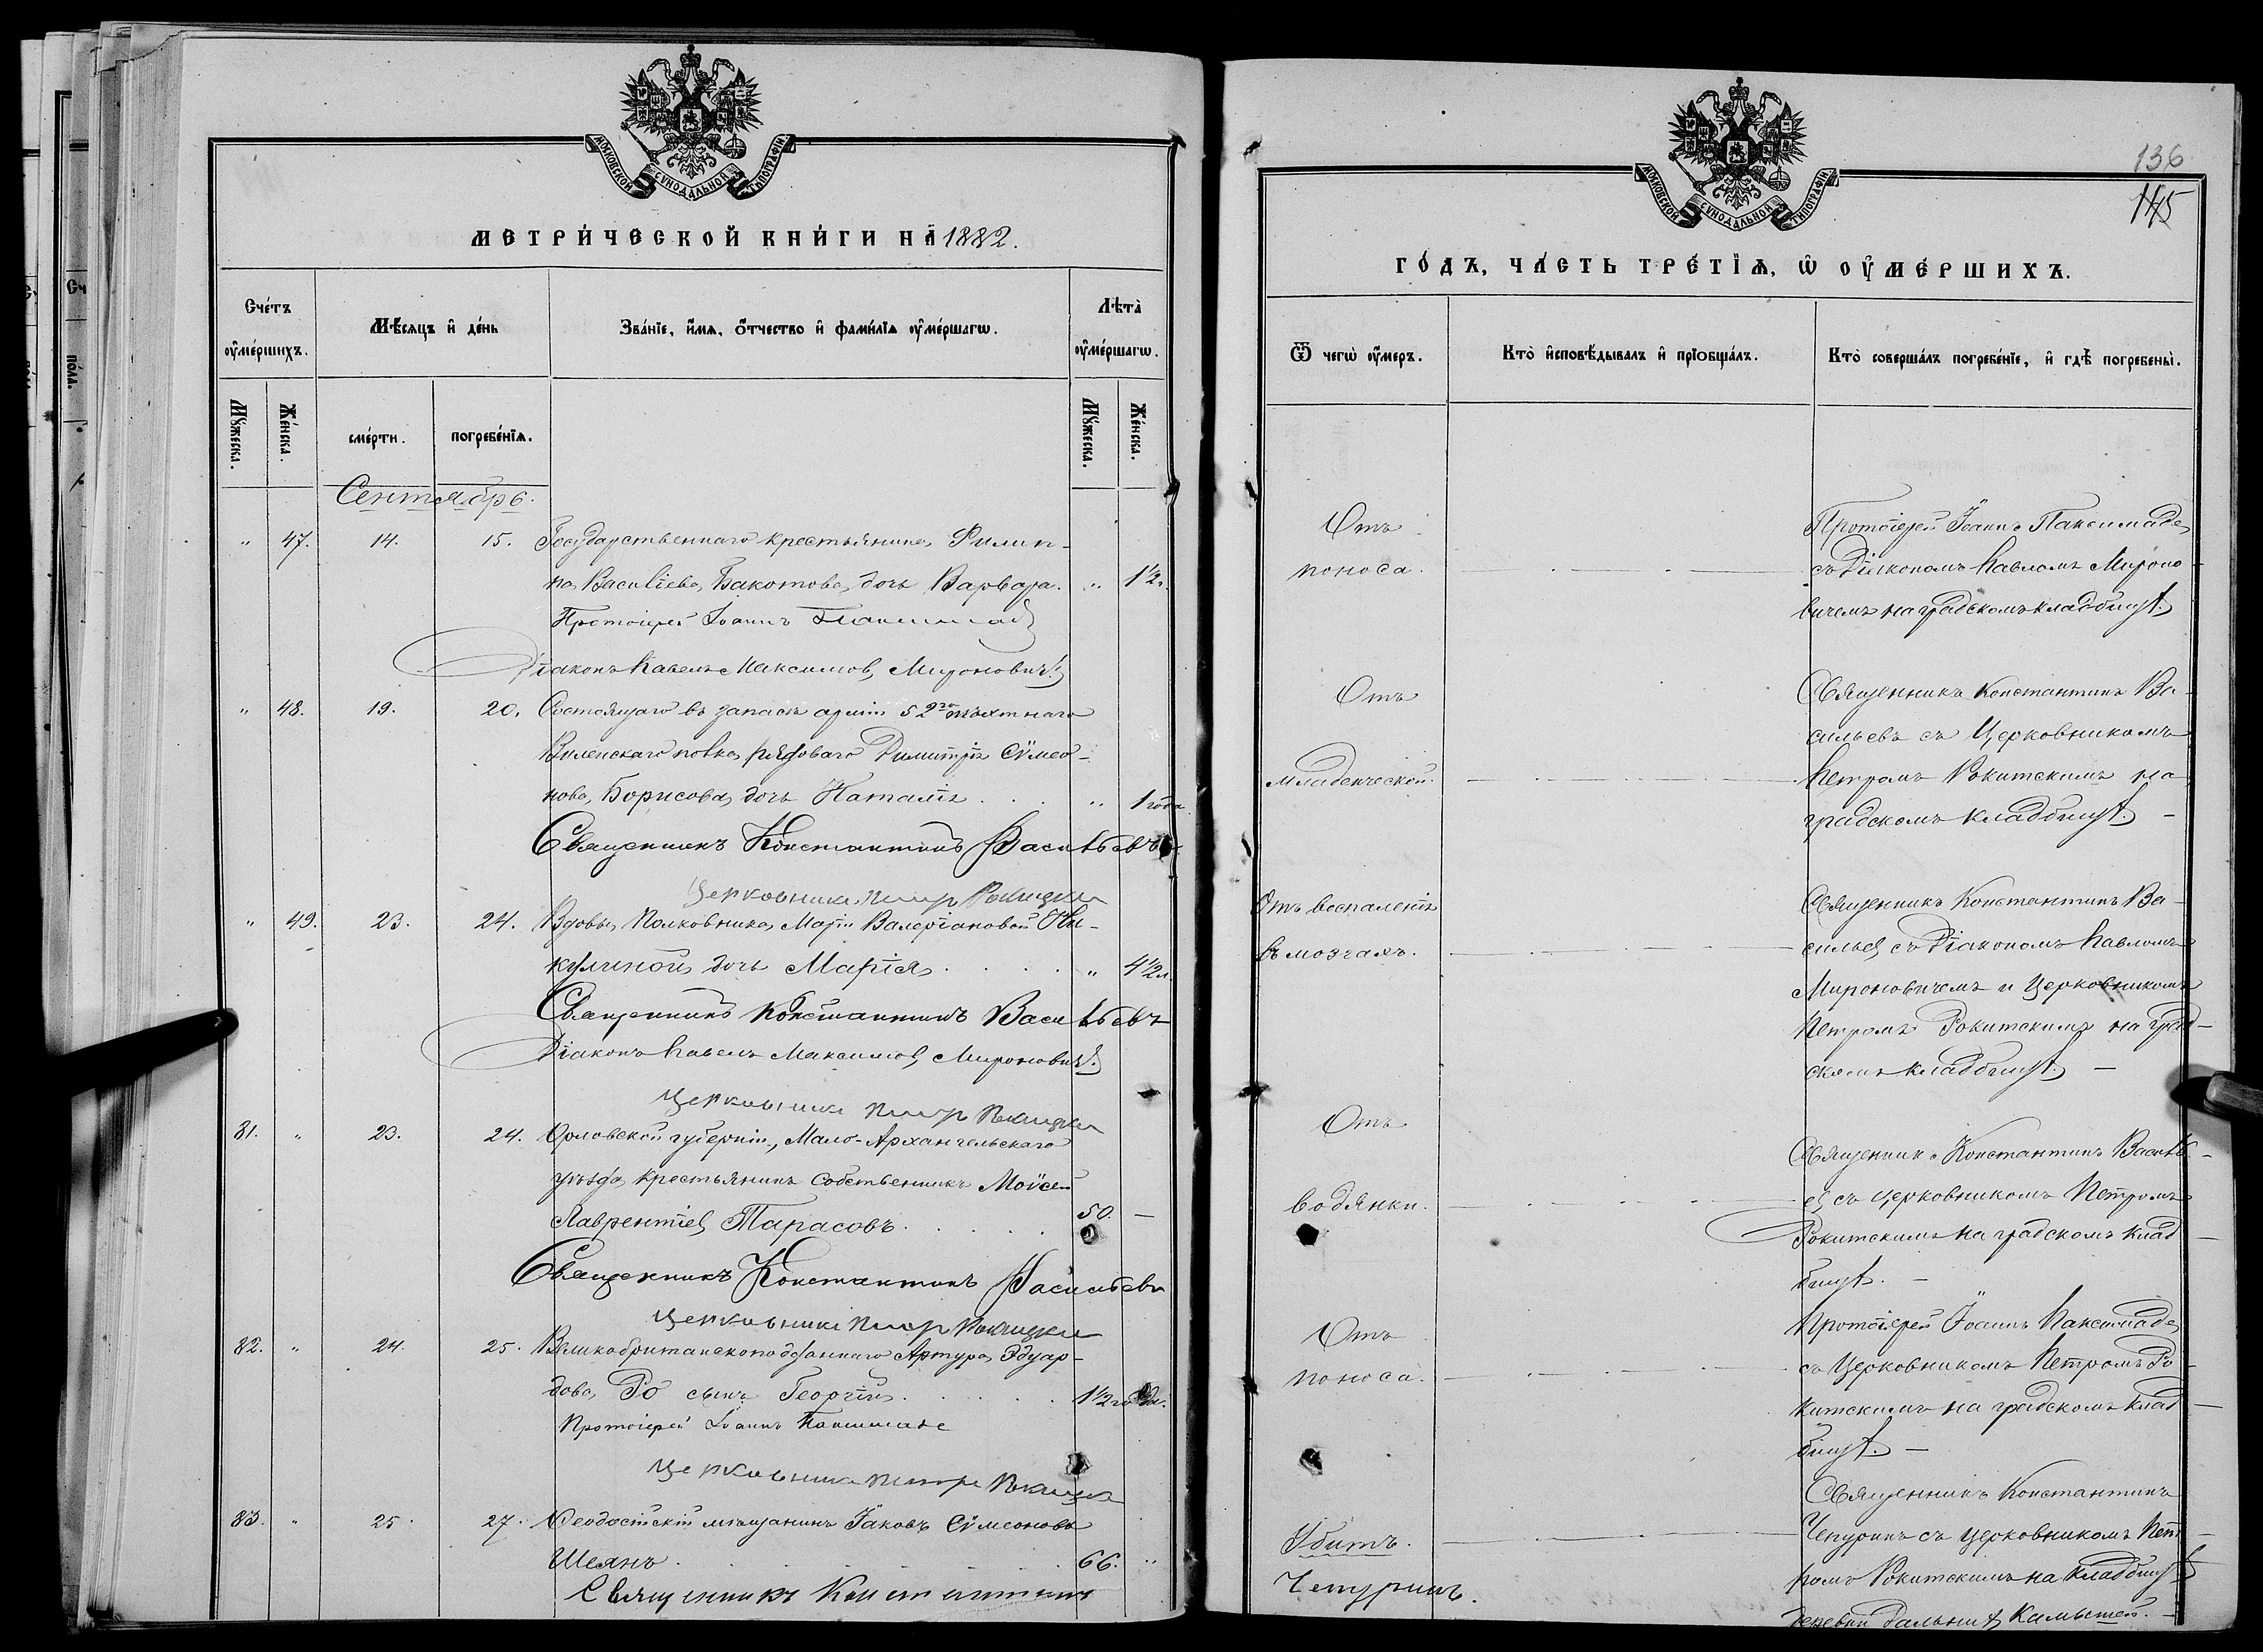 МОСКОВСКОЙ СУНОДАЛЬНОЙ ТИПОГРАФІИ
МЕТРИ́ЧЕСКОЙ КНИ́ГИ НА̀ 1882.
Сче́тъ ᲂу҆ме́ршихъ.
Мѣ́сяцъ и҆ де́нь
Зва́нїе, и҆́мѧ, ѻ҆́тчество и҆ фамі́лїѧ ᲂу҆ме́ршагѡ.
Лѣта̀ ᲂу҆ме́ршагѡ.
Мꙋ́жеска.
Же́нска.
сме́рти.
погребе́нїѧ.
Мꙋ́жеска.
Же́нска.
Сентябрь.
" 47. 14. 15. Государственнаго крестьянина Филип-
па Васильева Бакотова дочь Варвара. " 1½ г.
Протоіерей Іоаннъ Паксимаде
Діаконъ Павелъ Максимов Мироновичъ
" 48. 19. 20. Состоящаго въ запасѣ арміи 52го пѣхотнаго
Виленскаго полка рядоваго Димитрія Сѵмео-
нова Борисова дочь Наталія . . . " 1 года
Священникъ Константинъ Васильевъ
Церковникъ Петръ Рокицкій
" 49. 23. 24. Вдовы Полковника Маріи Валеріановой Ни-
кулиной дочь Марія . . . . " 4½ л.
Священникъ Константинъ Васильевъ
Діаконъ Павелъ Максимов Мироновичъ
Церковникъ Петръ Рокицкій
81. " 23. 24. Орловской губерніи, Мало-Архангельскаго
уѣзда крестьянинъ собственникъ Моѵсей
Лаврентіев Тарасовъ . . . . 50. —
Священникъ Константинъ Васильевъ
Церковникъ Петръ Рокицкій
82. " 24. 25. Великобританскоподданнаго Артура Эдуар-
дова Ро сынъ Георгій . . . . 1½ года.
Протоіерей Іоаннъ Паксимаде
Церковникъ Петръ Рокицкій
83. " 25. 27. Ѳеодосійскій мѣщанинъ Іаковъ Сѵмеоновъ
Шеянъ . . . . 66. "
Священникъ Константинъ
136
145
МОСКОВСКОЙ СУНОДАЛЬНОЙ ТИПОГРАФІИ
ГО́ДЪ, ЧА́СТЬ ТРЕ́ТЇѦ, Ѡ҆ ОУ҆МЕ́РШИХЪ.
Ѿ чегѡ̀ ᲂу҆́меръ.
Кто̀ и҆сповѣ́дывалъ и҆ прїѻбща́лъ.
Кто̀ соверша́лъ погребе́нїе, и҆ гдѣ̀ погребены̀.
Отъ
поноса.
Протоіерей Іоаннъ Паксимаде
съ Діакономъ Павломъ Мироно-
вичемъ на градскомъ кладбищѣ.
Отъ
младенческой.
Священникъ Константинъ Ва-
сильевъ съ Церковникомъ
Петромъ Рокитскимъ на
градскомъ кладбищѣ. —
Отъ воспаленія
въ мозгахъ.
Священникъ Константинъ Ва-
сильев съ Діакономъ Павломъ
Мироновичемъ и Церковникомъ
Петромъ Рокитскимъ на град-
скомъ кладбищѣ. —
Отъ
водянки.
Священникъ Константинъ Василь-
ев съ церковникомъ Петромъ
Рокитскимъ на градскомъ клад-
бищѣ. —
Отъ
поноса.
Протоіерей Іоаннъ Паксимаде
съ Церковникомъ Петромъ Ро-
китскимъ на градскомъ клад-
бищѣ. —
Убитъ.
Священникъ Константинъ
Чепуринъ съ церковникомъ Пет-
ромъ Рокитскимъ на кладбищѣ
деревни Дальнихъ Камышей. —
Чепуринъ.